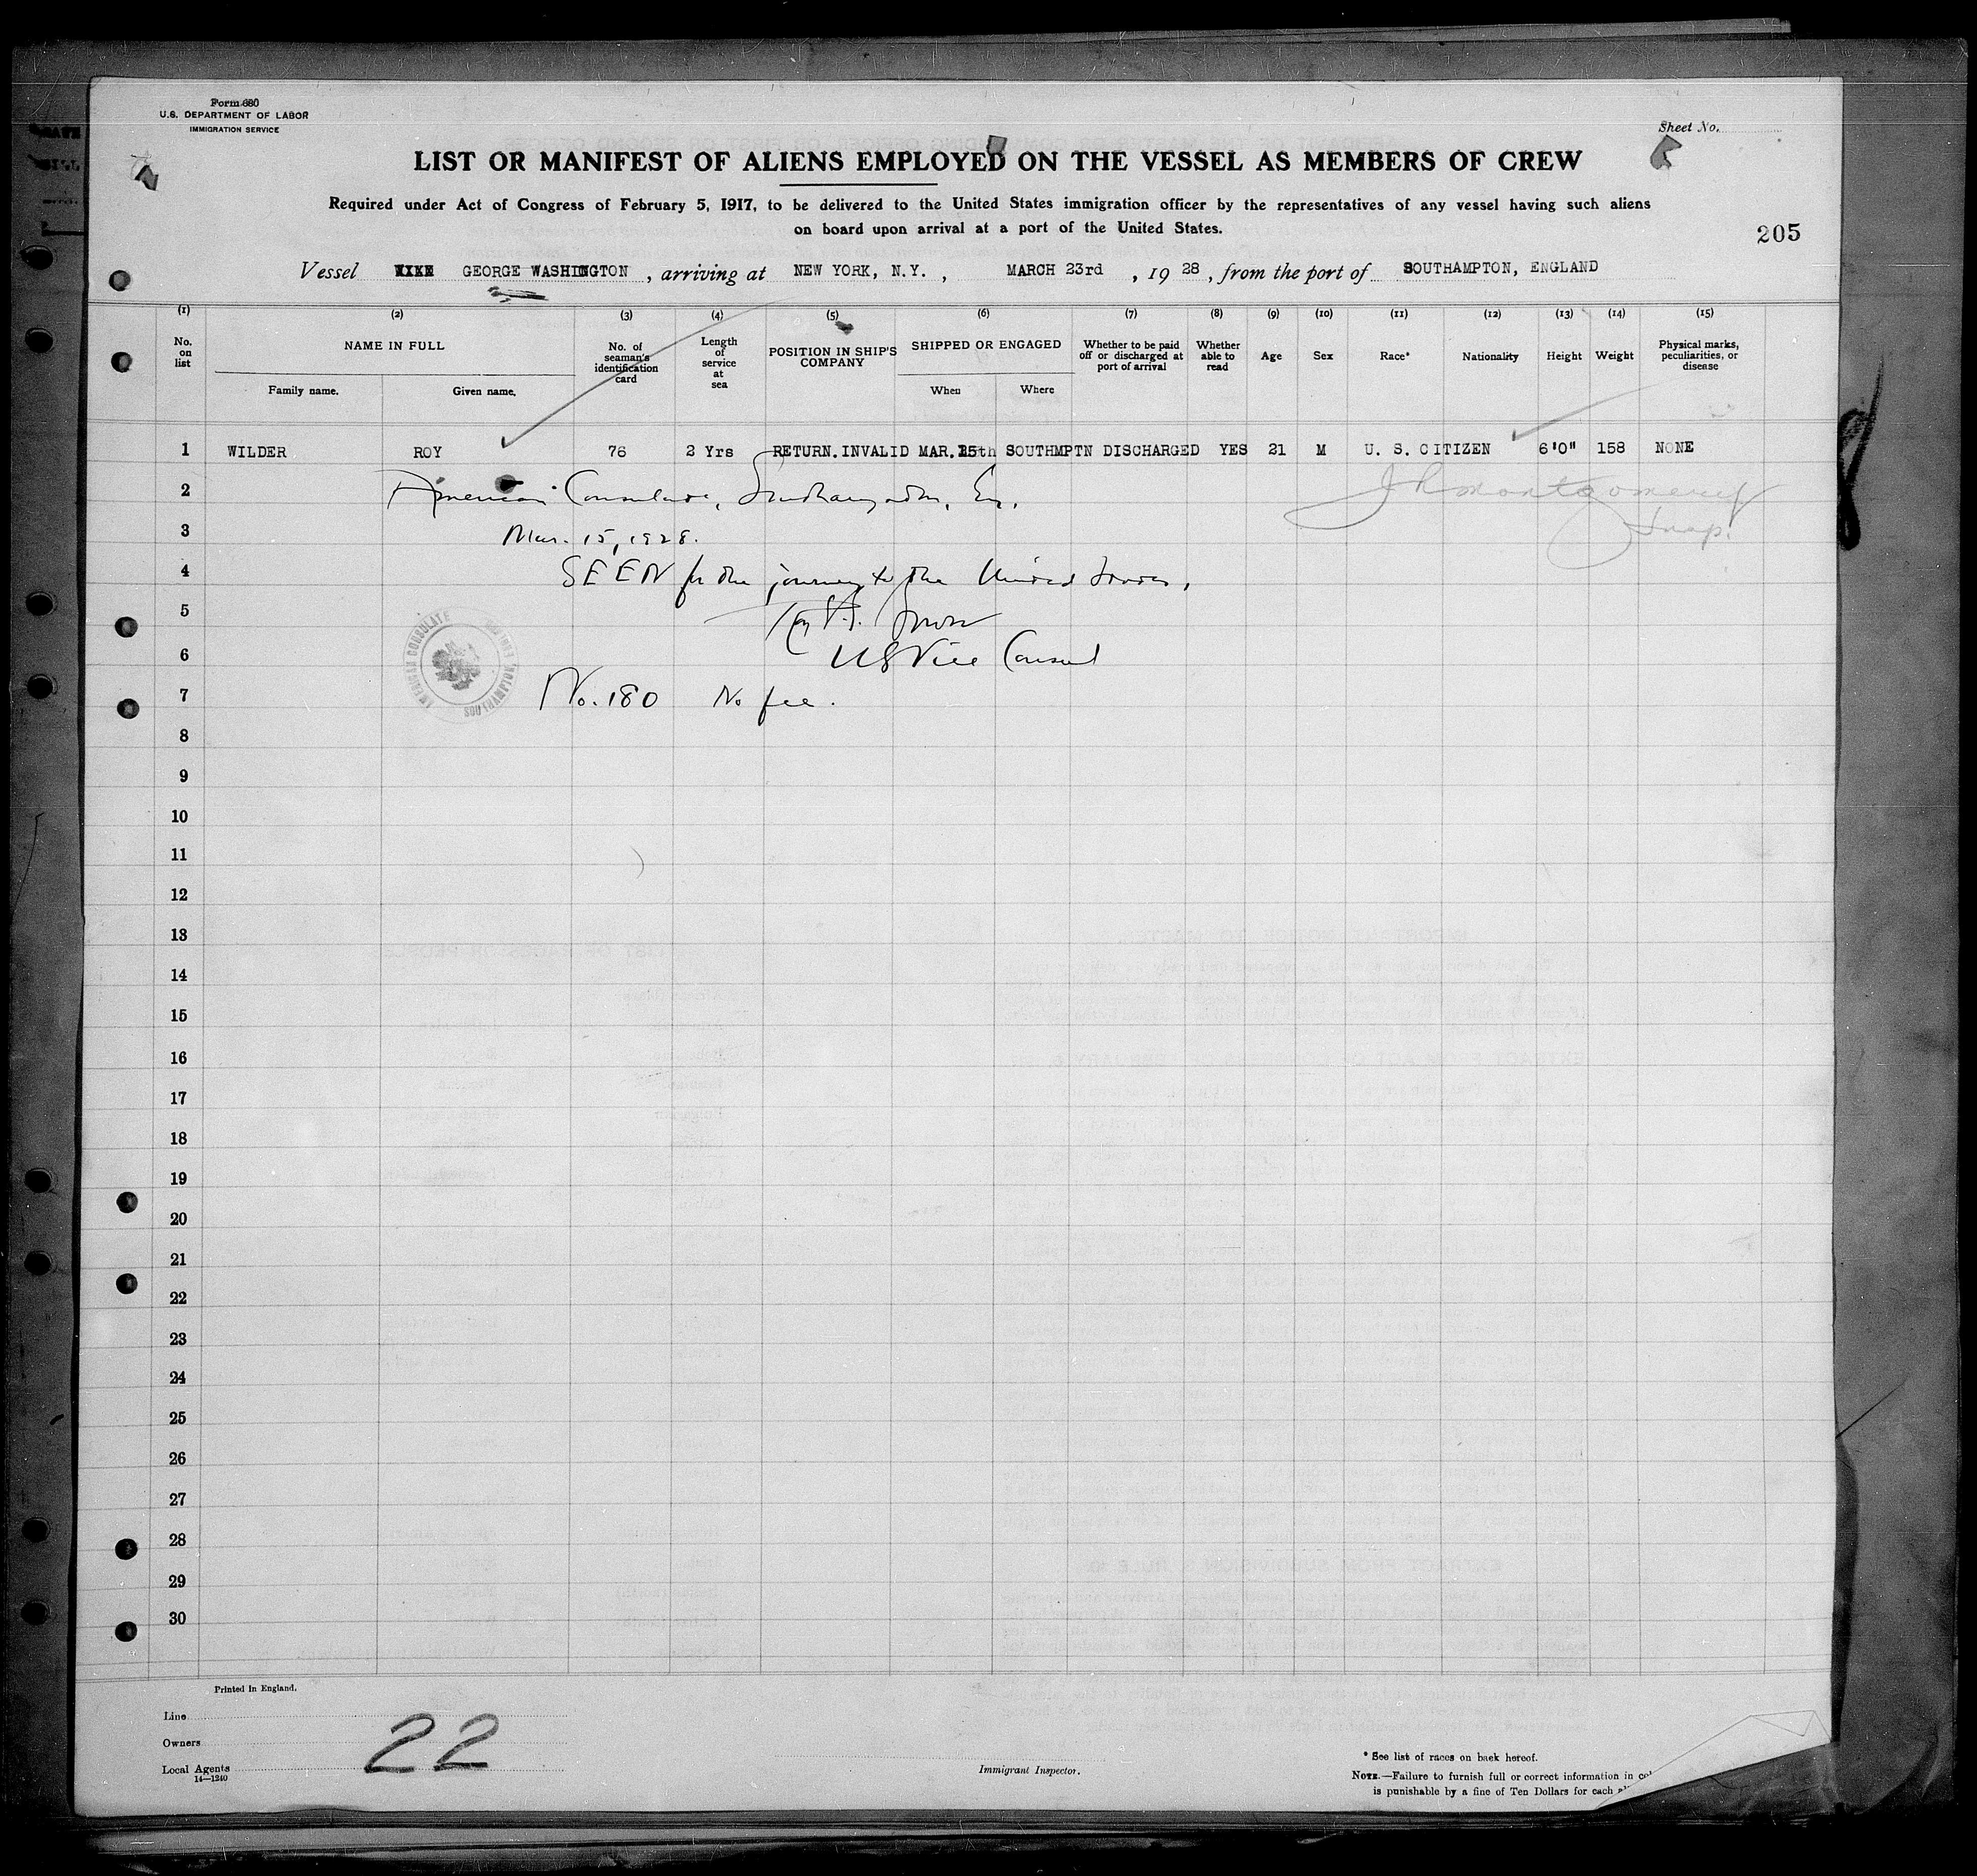 Form 680
U.S. DEPARTMENT OF LABOR
IMMIGRATION SERVICE
Sheet No.
LIST OR MANIFEST OF ALIENS EMPLOYED ON THE VESSEL AS MEMBERS OF CREW
Required under Act of Congress of February 5, 1917, to be delivered to the United States immigration officer by the representatives of any vessel having such aliens
on board upon arrival at a port of the United States.
205
Vessel GEORGE WASHINGTON, arriving at NEW YORK, N.Y., MARCH 23rd, 19 28, from the port of SOUTHAMPTON, ENGLAND
(1) (2) (3) (4) (5) (6) (7) (8) (9) (10) (11) (12) (13) (14) (15)
No. on list NAME IN FULL Family name. Given name. No. of seaman's identification card Length of service at sea POSITION IN SHIP'S COMPANY SHIPPED OR ENGAGED When Where Whether to be paid off or discharged at port of arrival Whether able to read Age Sex Race* Nationality Height Weight Physical marks, peculiarities, or disease
1 WILDER ROY 76 2 Yrs RETURN.INVALID MAR.15th SOUTHMPTN DISCHARGED YES 21 M U. S. CITIZEN 6'0" 158 NONE
2 American Consulate, Southampton, Eng. J R Montgomery
3 Mar. 15, 1928. Insp.
4 SEEN for the journey to the United States,
5
6 US Vice Consul
AMERICAN CONSULATE
7 No. 180 No fee.
8
9
10
11
12
13
14
15
16
17
18
19
20
21
22
23
24
25
26
27
28
29
30
Printed in England.
Line
Owners
Local Agents
14—1240
22
Immigrant Inspector.
* See list of races on back hereof.
NOTE.—Failure to furnish full or correct information in
is punishable by a fine of Ten Dollars for each